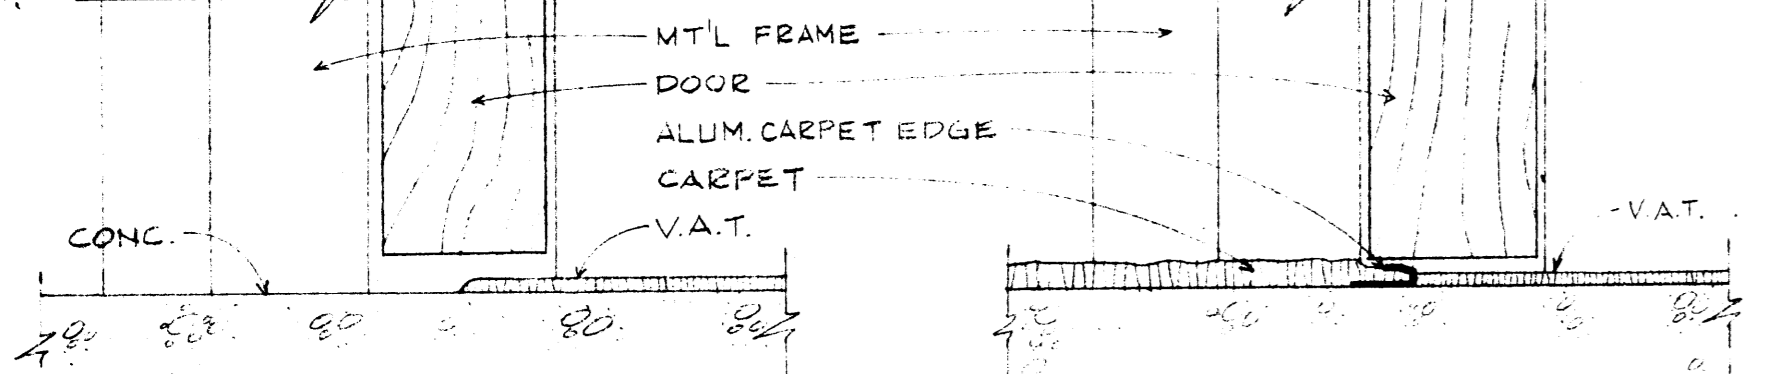 MT'L FRAME
DOOR
ALUM. CARPET EDGE
CARPET
CONC.
V.A.T.
V.A.T.